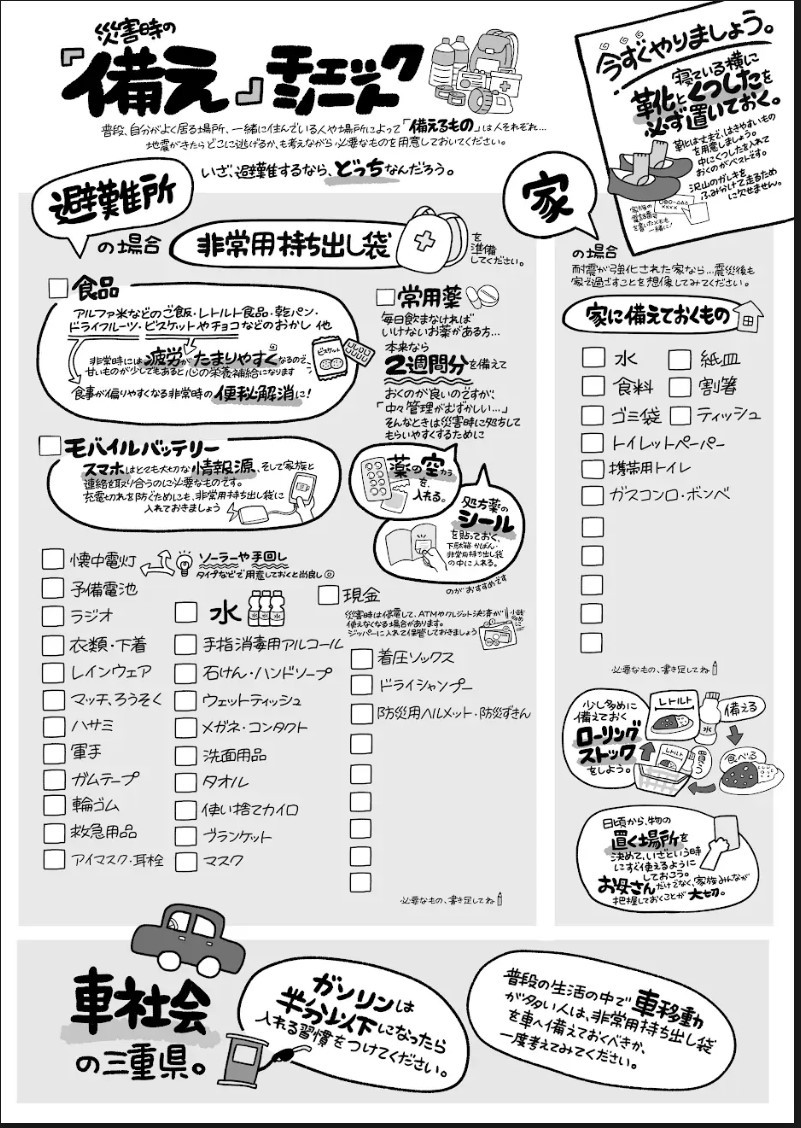 災害時の
『備え』チェックシート
普段、自分がよく居る場所、一緒に住んでいる人や場所によって「備えるもの」は人それぞれ…
地震がきたらどこに逃げるか、も考えながら必要なものを用意しておいてください。
いざ、避難するなら、どっちなんだろう。
今すぐやりましょう。
寝ている横に
靴とくつしたを
必ず置いておく。
靴は丈夫で、はきやすいもの
を用意しましょう。
中にくつしたを入れて
おくのがベストです。
沢山のガレキを
ふみ分けて走るため
に欠せません。
家族の
電話番号
を書いたメモも
一緒に!
避難所
の場合
非常用持ち出し袋
を
準備
してください。
食品
アルファ米などのご飯・レトルト食品・乾パン・
ドライフルーツ・ビスケットやチョコなどのおかし 他
非常時には疲労がたまりやすくなるので、
甘いものが少しでもあると心の栄養補給になります
食事が偏りやすくなる非常時の便秘解消に!
ビスケット
モバイルバッテリー
スマホはとても大切な情報源、そして家族と
連絡を取り合うのに必要なものです。
充電切れを防ぐためにも、非常用持ち出し袋に
入れておきましょう
常用薬
毎日飲まなければ
いけないお薬がある方…
本来なら
2週間分を備えて
おくのが良いのですが、
「中々管理がむずかしい…」
そんなときは災害時に処方して
もらいやすくするために
薬の空から
を、
入れる。
処方薬の
シール
を貼っておく、
下駄箱 かばん・
非常用持ち出し袋
の中に入れる。
のがおすすめです
懐中電灯
ソーラーや手回し
タイプなどで用意しておくと尚良し◎
予備電池
ラジオ
衣類・下着
レインウェア
マッチ、ろうそく
ハサミ
軍手
ガムテープ
輪ゴム
救急用品
アイマスク・耳栓
水
手指消毒用アルコール
石けん・ハンドソープ
ウェットティッシュ
メガネ・コンタクト
洗面用品
タオル
使い捨てカイロ
ブランケット
マスク
現金
災害時は停電して、ATMやクレジット決済が
使えなくなる場合があります。
ジッパーに入れて保管しておきましょう
小銭
多めに
着圧ソックス
ドライシャンプー
防災用ヘルメット・防災ずきん
必要なもの、書き足してね
家
の場合
耐震が強化された家なら…震災後も
家で過ごすことを想像してみてください。
家に備えておくもの
水
紙皿
食料
割箸
ゴミ袋
ティッシュ
トイレットペーパー
携帯用トイレ
ガスコンロ・ボンベ
必要なもの、書き足してね
少し多めに
備えておく
ローリング
ストック
をしよう。
レトルト
水
備える
食べる
買う
レトルト
日頃から、物の
置く場所を
決めて、いざという時
にすぐ使えるように
しておこう。
お母さんだけでなく、家族みんなが
把握しておくことが大切。
車社会
の三重県。
ガソリンは
半分以下になったら
入れる習慣をつけてください。
普段の生活の中で車移動
が多い人は、非常用持ち出し袋
を車へ備えておくべきか、
一度考えてみてください。